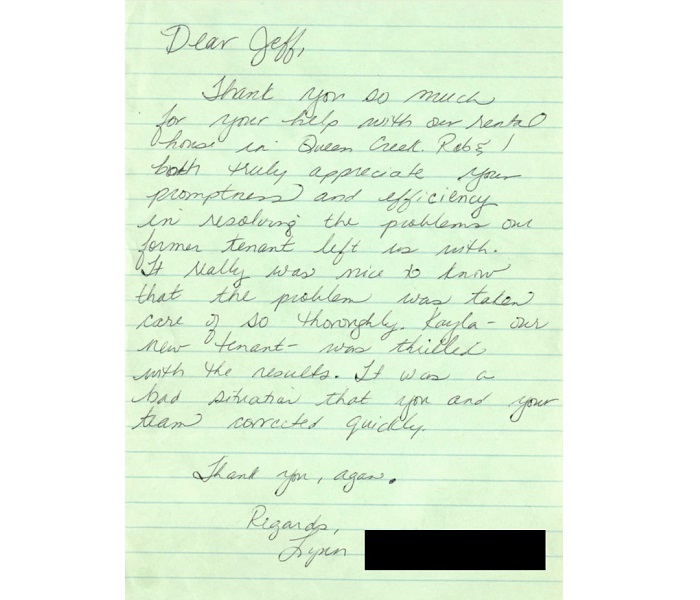 Dear Jeff,
Thank you so much
for your help with our rental
house in Queen Creek. Rob & I
both truly appreciate your
promptness and efficiency
in resolving the problems our
former tenant left us with.
It really was nice to know
that the problem was taken
care of so thoroughly. Kayla - our
new tenant - was thrilled
with the results. It was a
bad situation that you and your
team corrected quickly.
Thank you, again.
Regards,
Lynn